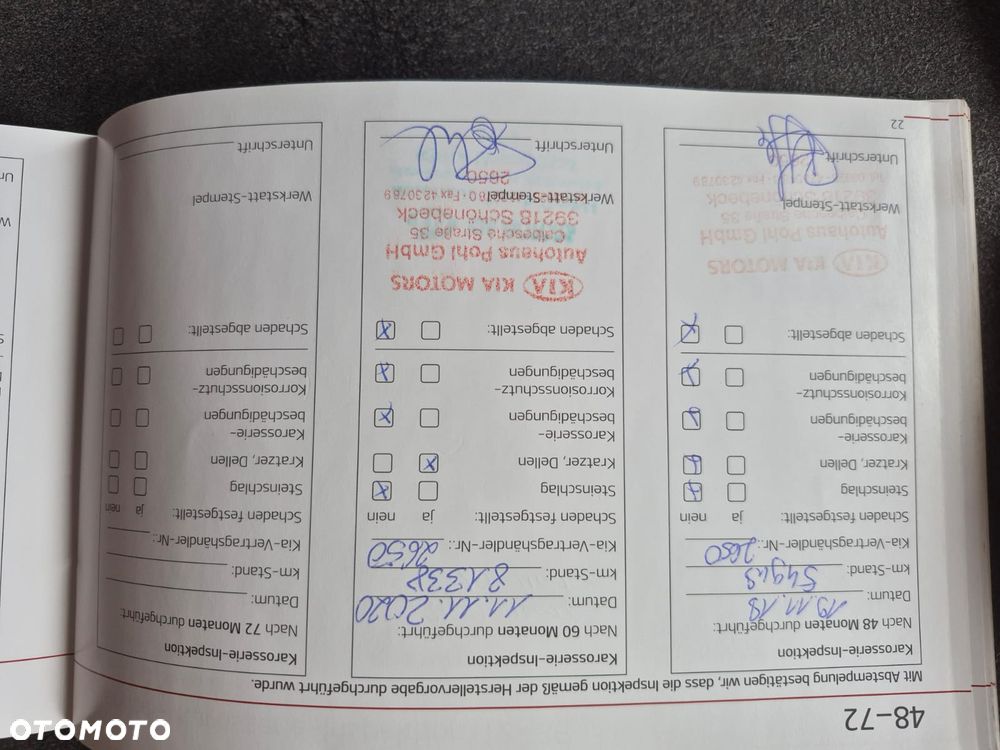 48–72
Mit Abstempelung bestätigen wir, dass die Inspektion gemäß der Herstellervorgabe durchgeführt wurde.
Karosserie-Inspektion
Nach 48 Monaten durchgeführt:
Datum: 19.11.18
km-Stand:
Kia-Vertragshändler-Nr.: 2650
Schaden festgestellt: ja nein
Steinschlag
Kratzer, Dellen
Karosserie-
beschädigungen
Korrosionsschutz-
beschädigungen
Schaden abgestellt:
KIA KIA MOTORS
Autohaus Pohl GmbH
Calbesche Straße 35
39218 Schönebeck
Werkstatt-Stempel
Unterschrift
22
Karosserie-Inspektion
Nach 60 Monaten durchgeführt:
Datum: 11.11.2020
km-Stand: 81338
Kia-Vertragshändler-Nr.: 2650
Schaden festgestellt: ja nein
Steinschlag
Kratzer, Dellen
Karosserie-
beschädigungen
Korrosionsschutz-
beschädigungen
Schaden abgestellt:
KIA KIA MOTORS
Autohaus Pohl GmbH
Calbesche Straße 35
39218 Schönebeck
Werkstatt-Stempel Fax 4230789
2650
Unterschrift
Karosserie-Inspektion
Nach 72 Monaten durchgeführt:
Datum:
km-Stand:
Kia-Vertragshändler-Nr.:
Schaden festgestellt: ja nein
Steinschlag
Kratzer, Dellen
Karosserie-
beschädigungen
Korrosionsschutz-
beschädigungen
Schaden abgestellt:
Werkstatt-Stempel
Unterschrift
OTOMOTO